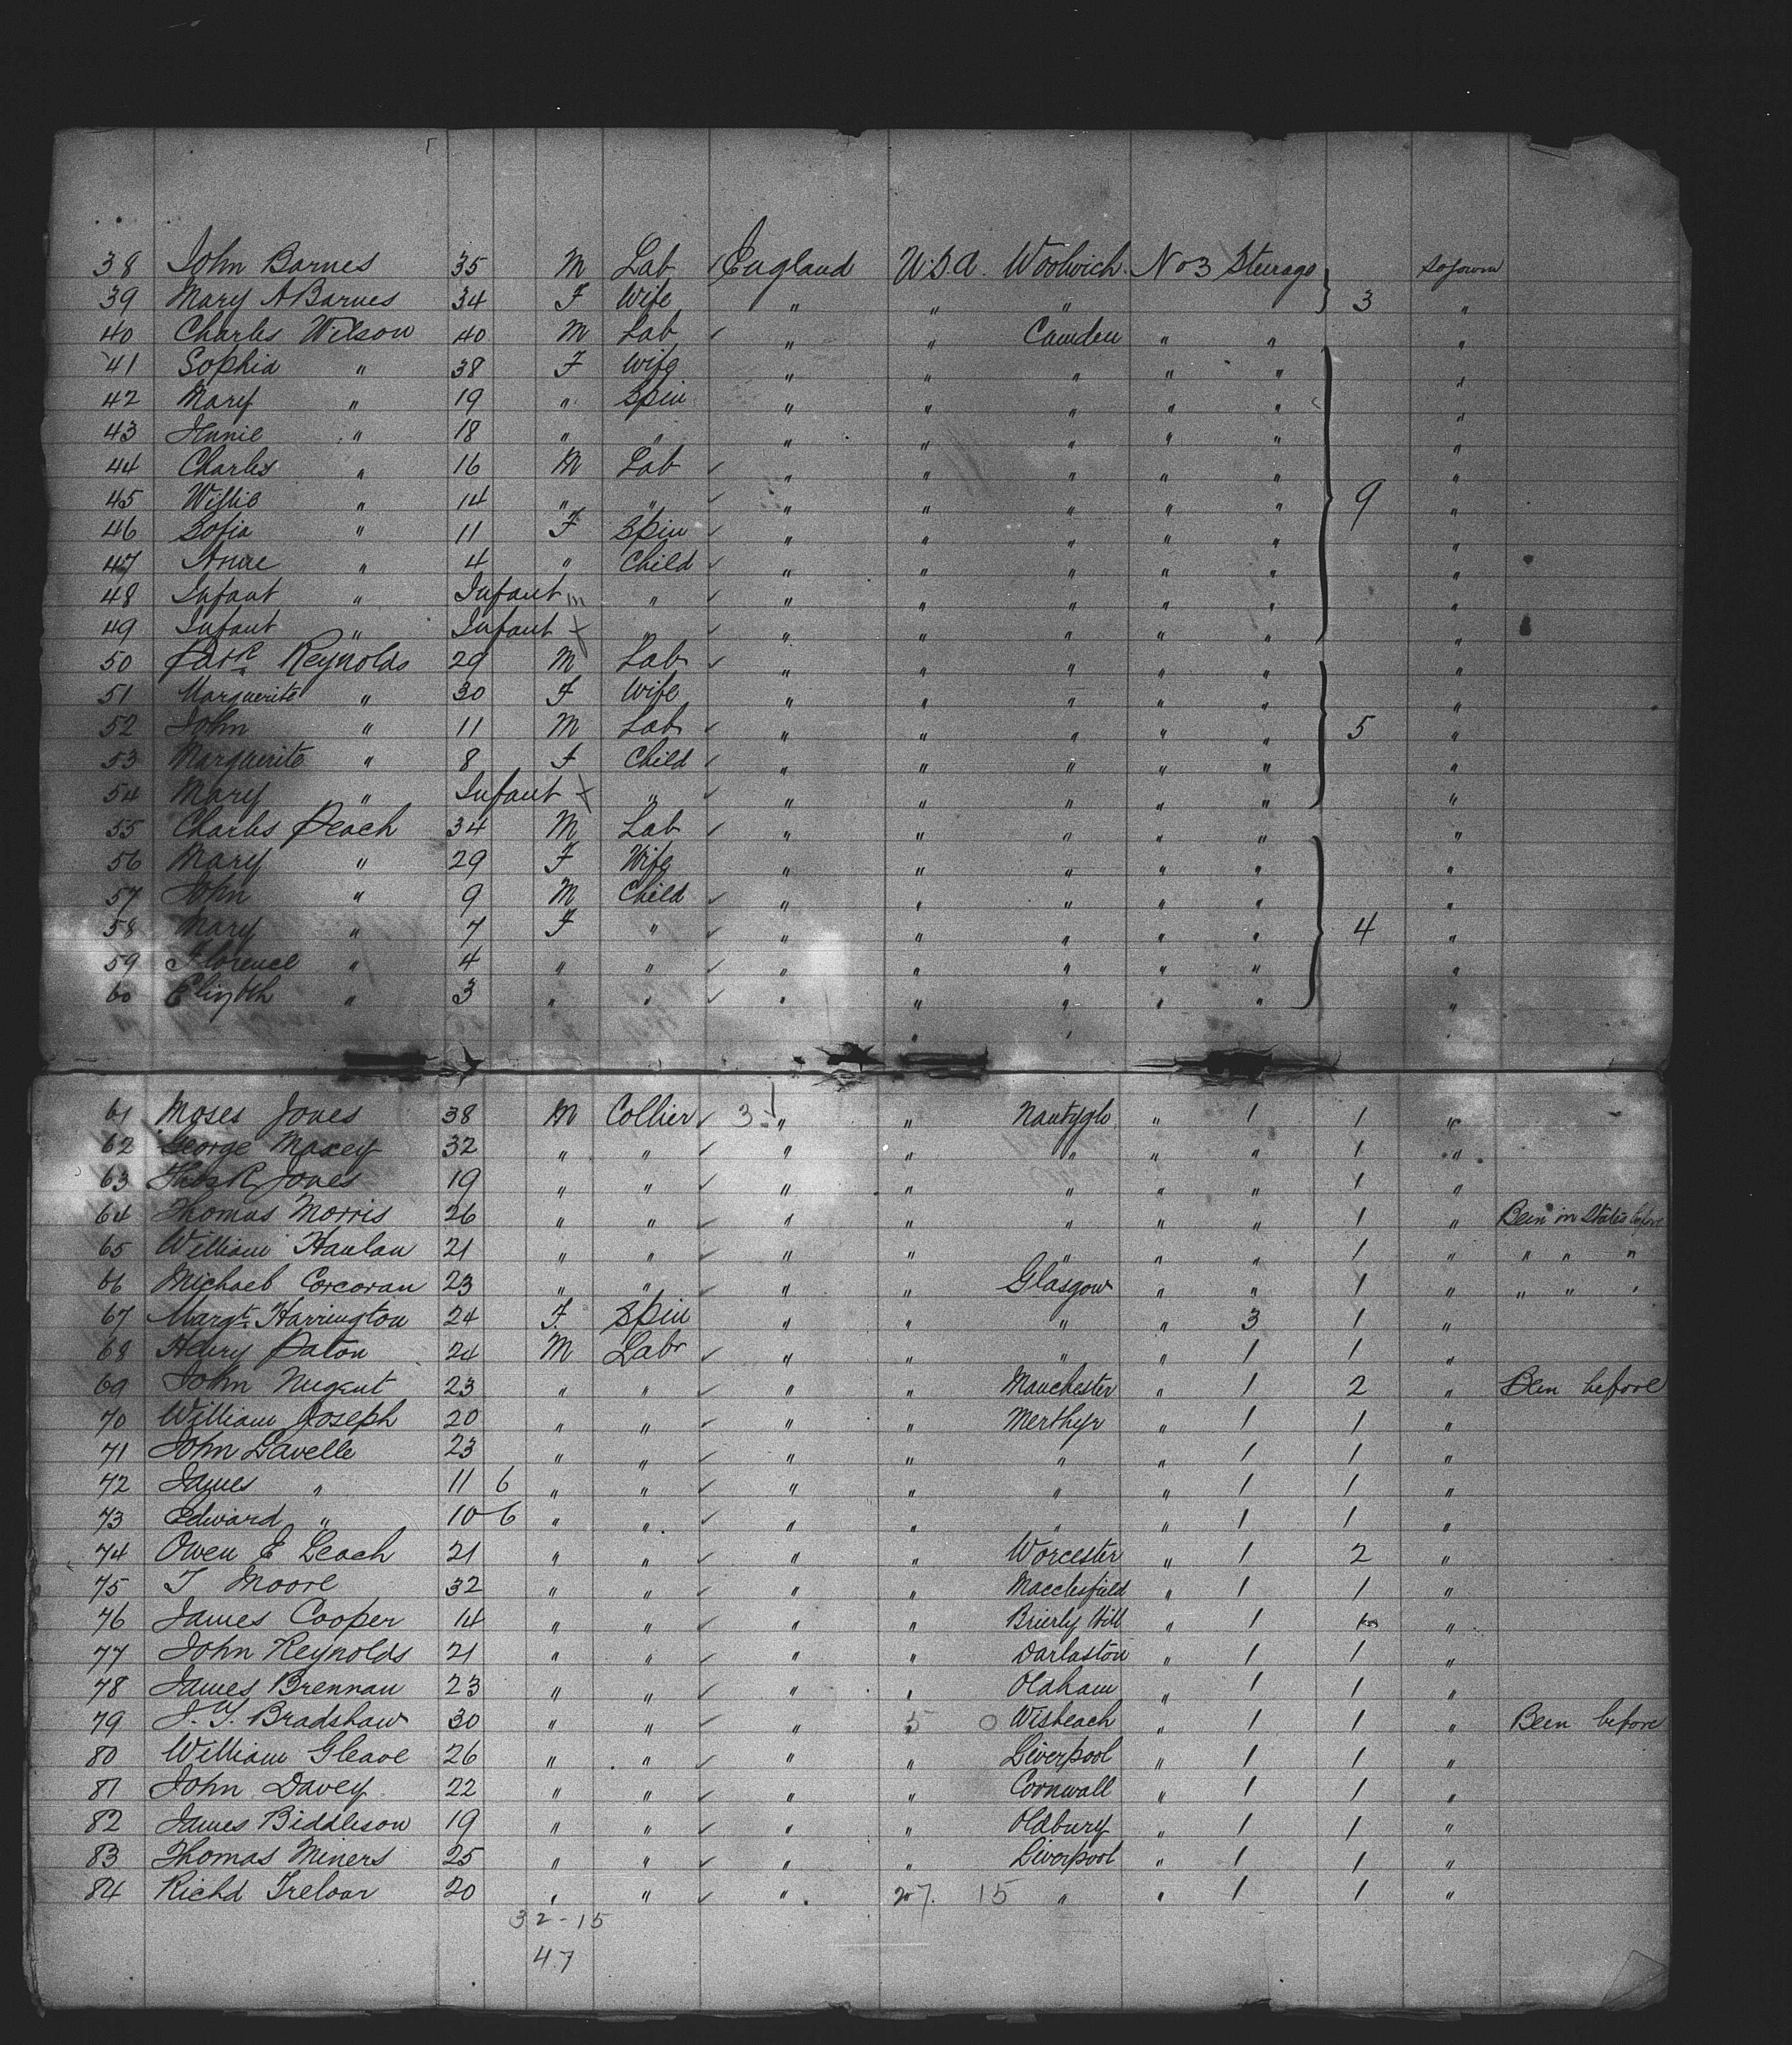 38 John Barnes 35 M Lab ✓ England U.S.A. Woolwich No 3 Steerage 3 Sojourn
39 Mary A Barnes 34 F Wife " " " "
40 Charles Wilson 40 M Lab ✓ " " Camden " " "
41 Sophia " 38 F Wife " " " " " "
42 Mary " 19 " Spin " " " " " "
43 Annie " 18 " " " " " " " "
44 Charles " 16 M Lab ✓ " " " " " "
45 Willie " 14 " " ✓ " " " " " 9 "
46 Sofia " 11 F Spin ✓ " " " " " "
47 " 4 " Child ✓ " " " " " "
48 Infant " Infant " ✓ " " " " " "
49 Infant " Infant " ✓ " " " " " "
50 Patk Reynolds 29 M Lab ✓ " " " " " "
51 Marguerite " 30 F Wife " " " " " "
52 John " 11 M Lab ✓ " " " " " 5 "
53 Marguerite " 8 F Child ✓ " " " " " "
54 Mary " Infant " ✓ " " " " " "
55 Charles Peach 34 M Lab ✓ " " " " " "
56 Mary " 29 F Wife " " " " " "
57 John " 9 M Child ✓ " " " " " "
58 Mary " 7 F " ✓ " " " " " 4 "
59 Florence " 4 " " ✓ " " " " " "
60 Elizbth " 3 " " ✓ " " " " " "
61 Moses Jones 38 M Collier ✓ 3 " " Nantyglo " 1 1 "
62 George Maxey 32 " " ✓ " " " " " 1 "
63 Thos R Jones 19 " " ✓ " " " " " 1 "
64 Thomas Morris 26 " " ✓ " " " " " 1 " Been in States before
65 William Hanlan 21 " " ✓ " " " " " 1 " " " "
66 Michael Corcoran 23 " " ✓ " " Glasgow " " 1 " " " "
67 Margt Harrington 24 F. Spin " " " " 3 1 "
68 Henry Paton 24 M Labr ✓ " " " " 1 1 "
69 John Nugent 23 " " ✓ " " Manchester " 1 2 " Been before
70 William Joseph 20 " " ✓ " " Merthyr " 1 1 "
71 John Lavelle 23 " " ✓ " " " " 1 1 "
72 James " 11 6 " " ✓ " " " " 1 1 "
73 Edward " 10 6 " " ✓ " " " " 1 1 "
74 Owen E Leach 21 " " ✓ " " Worcester " 1 2 "
75 T Moore 32 " " ✓ " " Macclesfield " 1 1 "
76 James Cooper 14 " " ✓ " " Brierly Hill " 1 "
77 John Reynolds 21 " " ✓ " " Darlaston " 1 1 "
78 James Brennan 23 " " ✓ " " Oldham " 1 1 "
79 J. Y. Bradshaw 30 " " ✓ " 5 0 Wisbeach " 1 1 " Been before
80 William Gleave 26 " " ✓ " " Liverpool " 1 1 "
81 John Davey 22 " " ✓ " " Cornwall " 1 1 "
82 James Biddleson 19 " " ✓ " " Oldbury " 1 1 "
83 Thomas Miners 25 " " ✓ " " Liverpool " 1 1 "
84 Richd Treloar 20 " " ✓ " 207. 15 " " 1 1 "
32-15
47